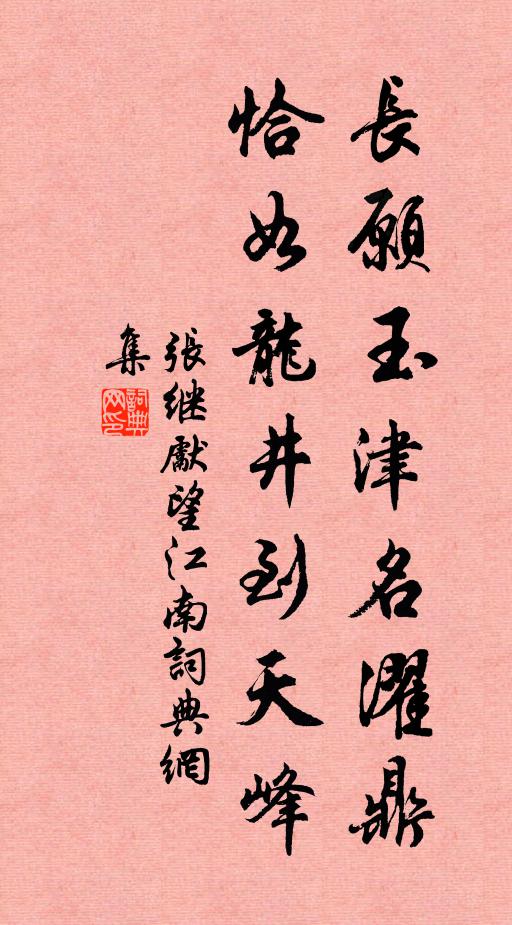 長願玉津名濯鼎
恰如龍井到天峰
張继獻望江南詞典網
集
詞典
网印